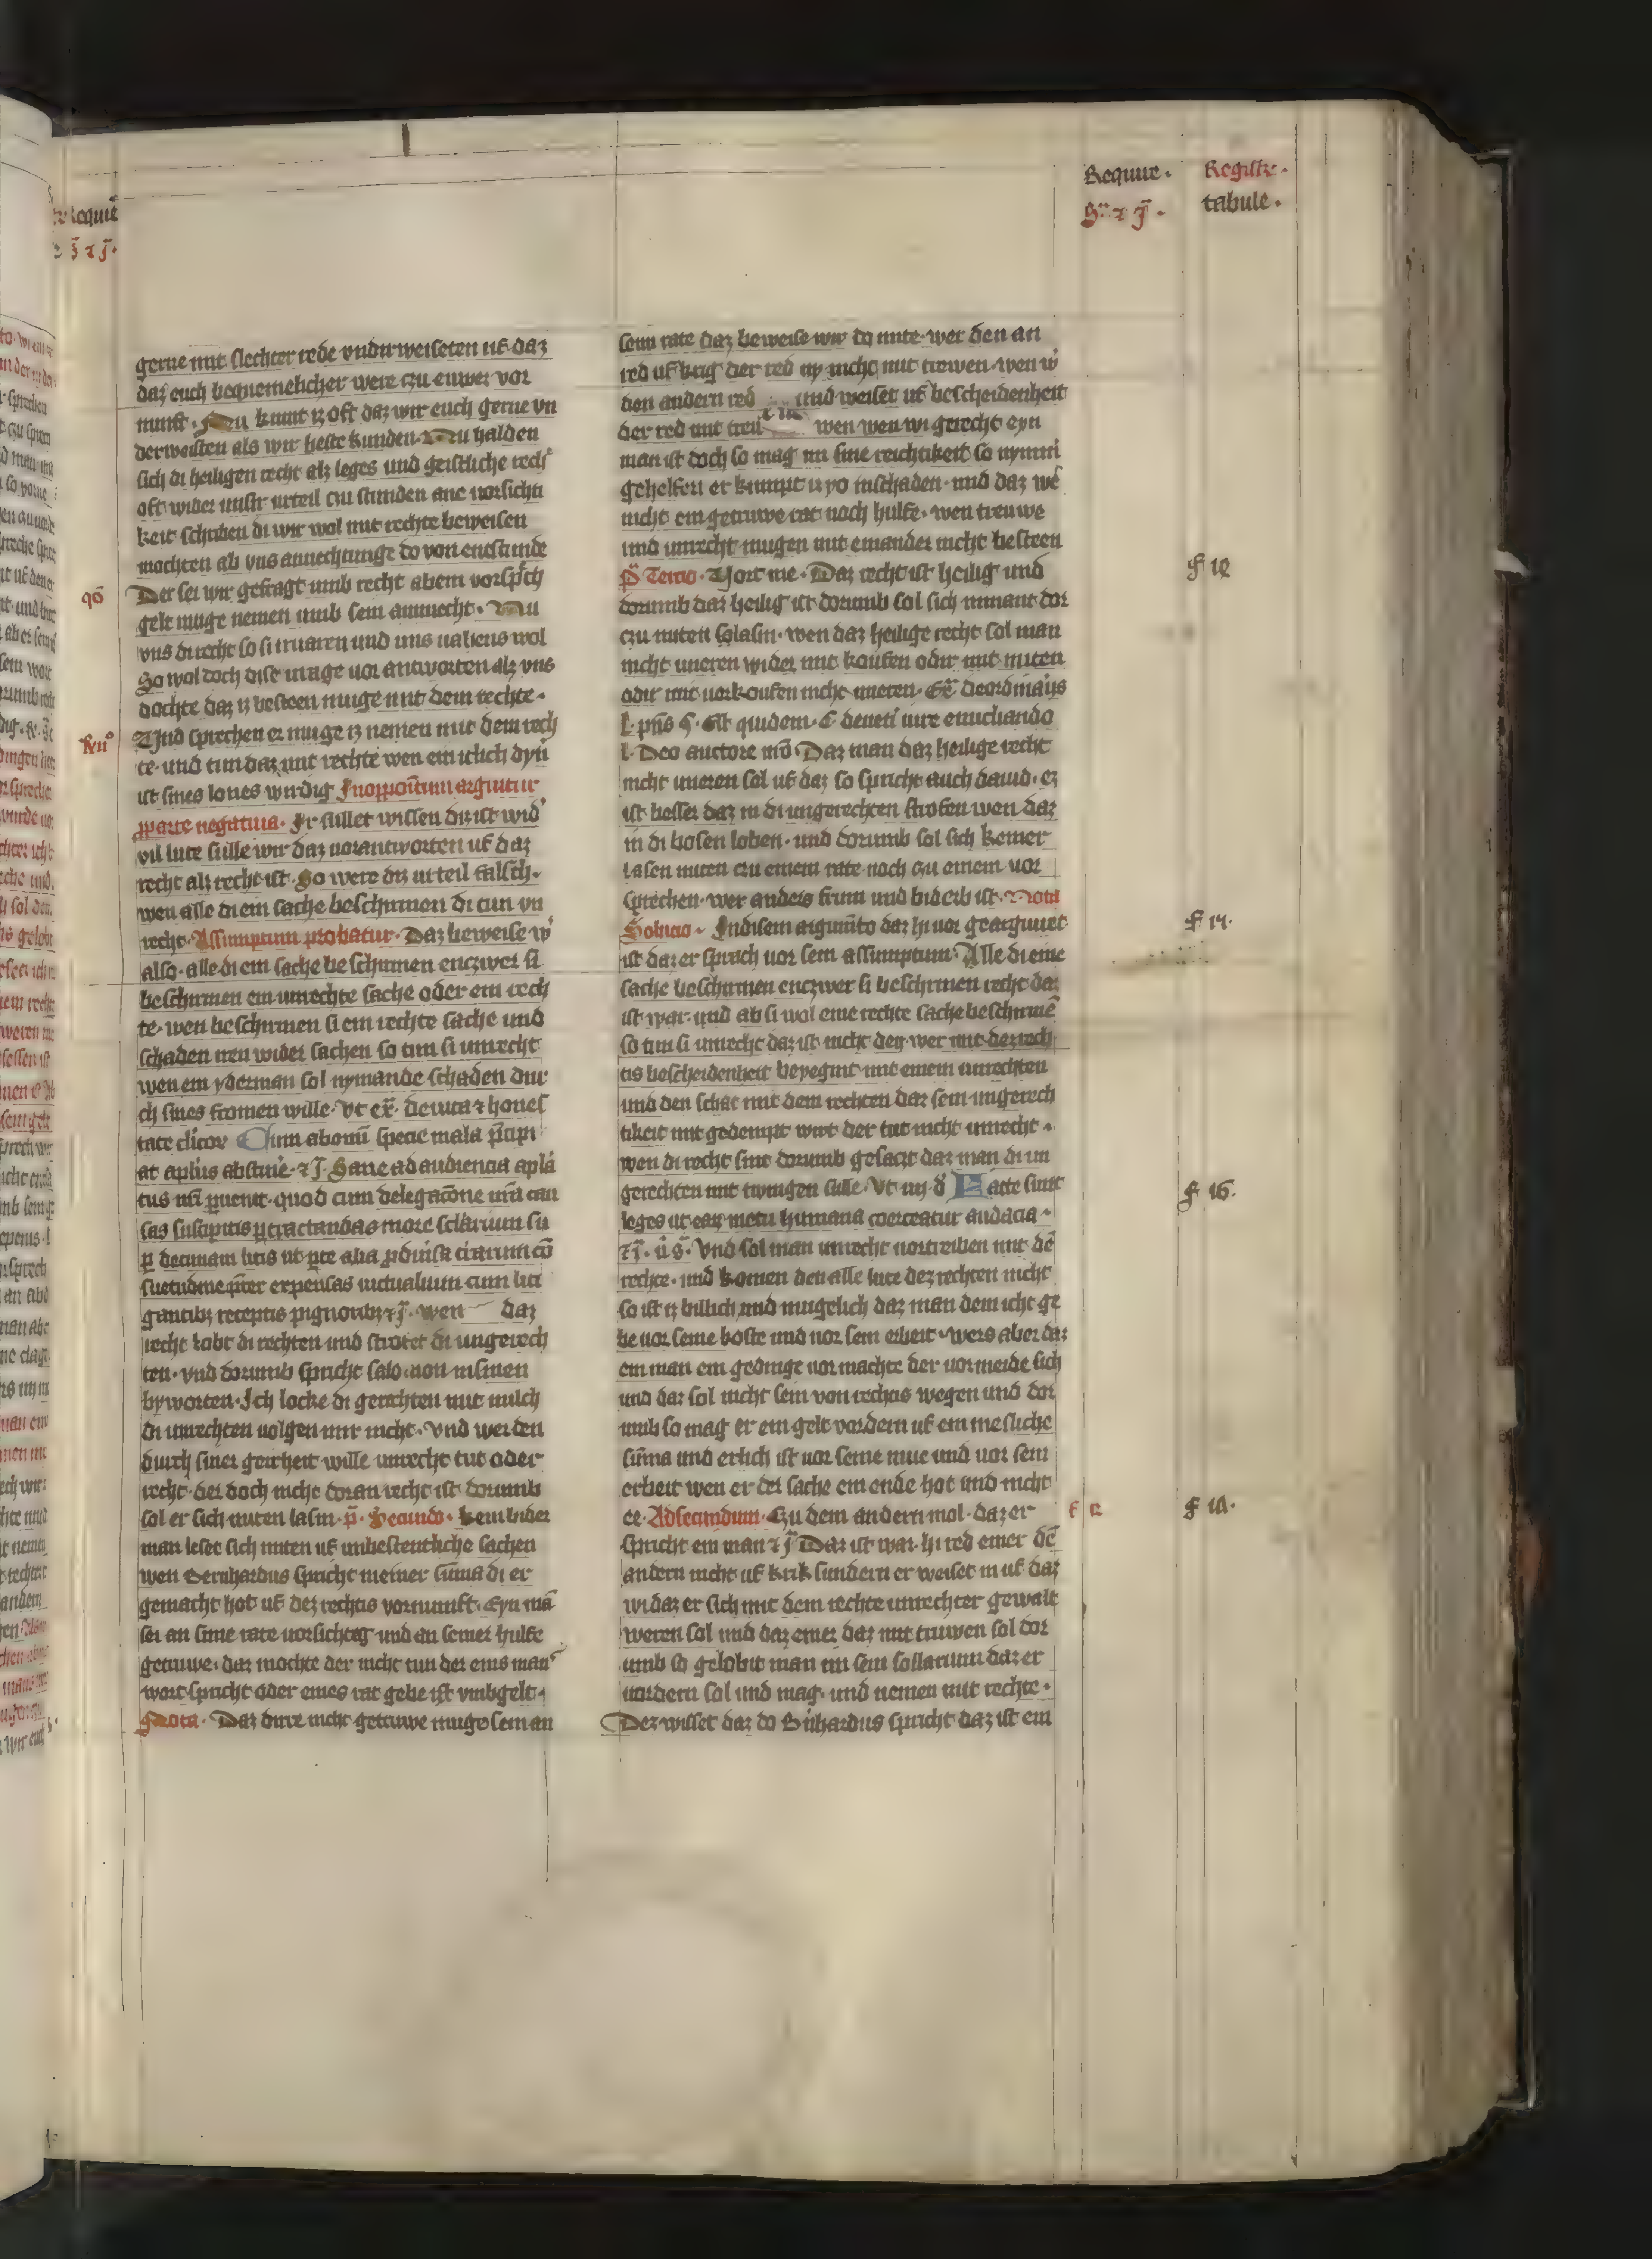 Require. Registr.
tabule.
gerne mit slechter rede vnd'rweiseten uf daz
daz euch bequemelicher were czu euwer vor
nunft. Nu kumt iz oft daz wir euch gerne vn
derweisten als wir beste kunden. Nu halden
sich di heiligen recht alz leges und geistliche rech
oft wider unser urteil czu stunden ane vorsichti
keit schriben di wir wol mit rechte beweisen
mochten ab vns anuechtunge do von enstunde
qō Der sei wir gefragt umb recht ab em vorsp'ch
gelt muge nemen umb sein ammecht. Nu
vns di recht so si
So wol doch dise vrage vor antworten alz vns
dochte daz iz besteen muge mit dem rechte.
Und sprechen er muge iz nemen mit dem rech
te. und tun daz mit rechte wen ein iclich dyn'
ist sines lones wirdig In oppositum arguitur
p parte negatiua. Ir sullet wissen diz ist wid'
vil lute sulle wir daz vorantworten uf daz
recht alz recht ist. So were diz urteil falsch.
wen alle di ein sache beschirmen di tun vn
recht. Assumptum probatur. Daz beweise w'
also. alle di ein sache beschirmen enczwer si
beschirmen ein unrechte sache oder ein rech
te. wen beschirmen si ein rechte sache und
schaden iren wider sachen so tun si unrecht
wen ein yderman sol nymande schaden dur
ch sines fromen wille. Vt ex. de uita et hones
tate cl'icor Cum ab omni specie mala p'cipi
at apl'us abstine. et J. Sane ad audiencia apl'a
tus n'ri peruenit. quod cum delegac'one n'ra cau
sas suscipitis pertractandas more sc'larium su
p decimam litis ut p'te alia
suetudine p'ter expensas uictualium cum liti
gantib; receptis pignorib; et J. wen daz
recht lobt di rechten und strofet di ungerech
ten. vnd dorumb spricht salomon in sinen
byworten. Ich locke di gerechten mit milch
di unrechten volgen mir nicht. Vnd wer den
durch siner geirheit wille unrecht tut oder
recht. der doch nicht doran recht ist dorumb
sol er sich miten lasin. p. Secundo. kein bider
man leset sich miten uf unbestentliche sachen
wen Bernhardus spricht in einer su'ma di er
gemacht hot uf dez rechtis vornunft. Eyn man
sei an sime rate vorsichtig und an seiner hulfe
getruwe. daz mochte der nicht tun der eins man
wort spricht oder eines rat gebe ist vmb gelt.
Nota. Daz dirre nicht getruwe muge sein an
sem rate daz beweise wir do mite. wer den an
red uf krig der red ny nicht mit trewen. wen w'
den andern red und weiset uf bescheidenheit
der red mit treu wen wen wi gerecht eyn
man ist doch so mag im sine reichtikeit so nymmer
gehelfen er kumpt u yo in schaden. und daz we'
nicht ein getruwe rat noch hulfe. wen treuwe
und unrecht mugen mit einander nicht besteen
p Tercio. Hort me. Daz recht ist heilig und
dorumb daz heilig ist dorumb sol sich nimant dor
czu miten lasin. wen daz heilige recht sol man
nicht uneren wider mit koufen odir mit miten
odir mit vorkoufen nicht uneren. Ex de ordinariis
l. p'ns §. Est quidem. C. de ueti iure enucliando
l. Deo auctore mō. Daz man daz heilige recht
nicht uneren sol uf daz so spricht auch dauid. ez
ist besser daz in di ungerechten strofen wen daz
in di bosen loben. und dorumb sol sich keiner
lasen miten czu einem rate noch czu einem vor
sprechen. wer anders frum und biderb ist. Nota
Solucio. In disem argum'to daz hi vor geargwiret
ist daz er sprach vor sein assumptum. Alle di eine
sache beschirmen enczwer si beschirmen recht daz
ist war. und ab si wol eine rechte sache beschirme'
so tun si unrecht daz ist nicht den wer mit dez rech
tis bescheidenheit beyegint mit einem unrechten
und den schat mit dem rechten daz sein ungerech
tikeit mit gedempt wirt der tut nicht unrecht.
wen di recht sint dorumb gesaczt daz man di un
gerechten mit twingen sulle. Vt iiij. d' Facte sunt
leges ut earum metu humana coerceatur audacia.
et J. Vnd sol man unrecht vortreiben mit de'
rechte. und komen den alle lute dez rechten nicht
so ist iz billich und mugelich daz man dem icht ge
be vor seine koste und vor sein erbeit. wers aber daz
ein man ein gedinge vor machte der vormeide sich
und daz sol nicht sein von rechtis wegen und dor
umb so mag er ein gelt vordern uf ein mesliche
su'ma und erlich ist vor seine mue und vor sein
erbeit wen er der sache ein ende hot und nicht
ee. Ad secundum. Czu dem andern mol. daz er
spricht ein man et J. Daz ist war. hi red einer de'
andern nicht uf krik sundern er weiset in uf daz
wi daz er sich mit dem rechte unrechter gewalt
weren sol und daz einer daz mit truwen sol dor
umb so gelobit man im sein sollarium daz er
vordern sol und mag. und nemen mit rechte.
Dez wisset daz do B'nhardus spricht daz ist ein
f 12
f 14.
f 16.
f 18.